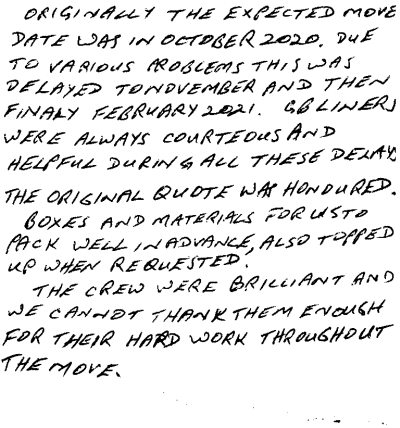 ORIGINALLY THE EXPECTED MOVE
DATE WAS IN OCTOBER 2020. DUE
TO VARIOUS PROBLEMS THIS WAS
DELAYED TO NOVEMBER AND THEN
FINALY FEBRUARY 2021. GB LINERS
WERE ALWAYS COURTEOUS AND
HELPFUL DURING ALL THESE DELAYS
THE ORIGINAL QUOTE WAS HONOURED.
BOXES AND MATERIALS FOR US TO
PACK WELL IN ADVANCE, ALSO TOPPED
UP WHEN REQUESTED.
THE CREW WERE BRILLIANT AND
WE CANNOT THANK THEM ENOUGH
FOR THEIR HARD WORK THROUGHOUT
THE MOVE.